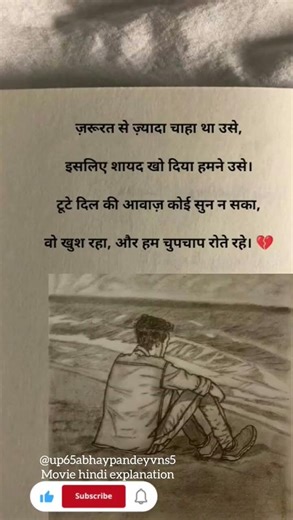 ज़रूरत से ज़्यादा चाहा था उसे,
इसलिए शायद खो दिया हमने उसे।
टूटे दिल की आवाज़ कोई सुन न सका,
वो खुश रहा, और हम चुपचाप रोते रहे। 💔
@up65abhaypandeyvns5
Movie hindi explanation
Subscribe